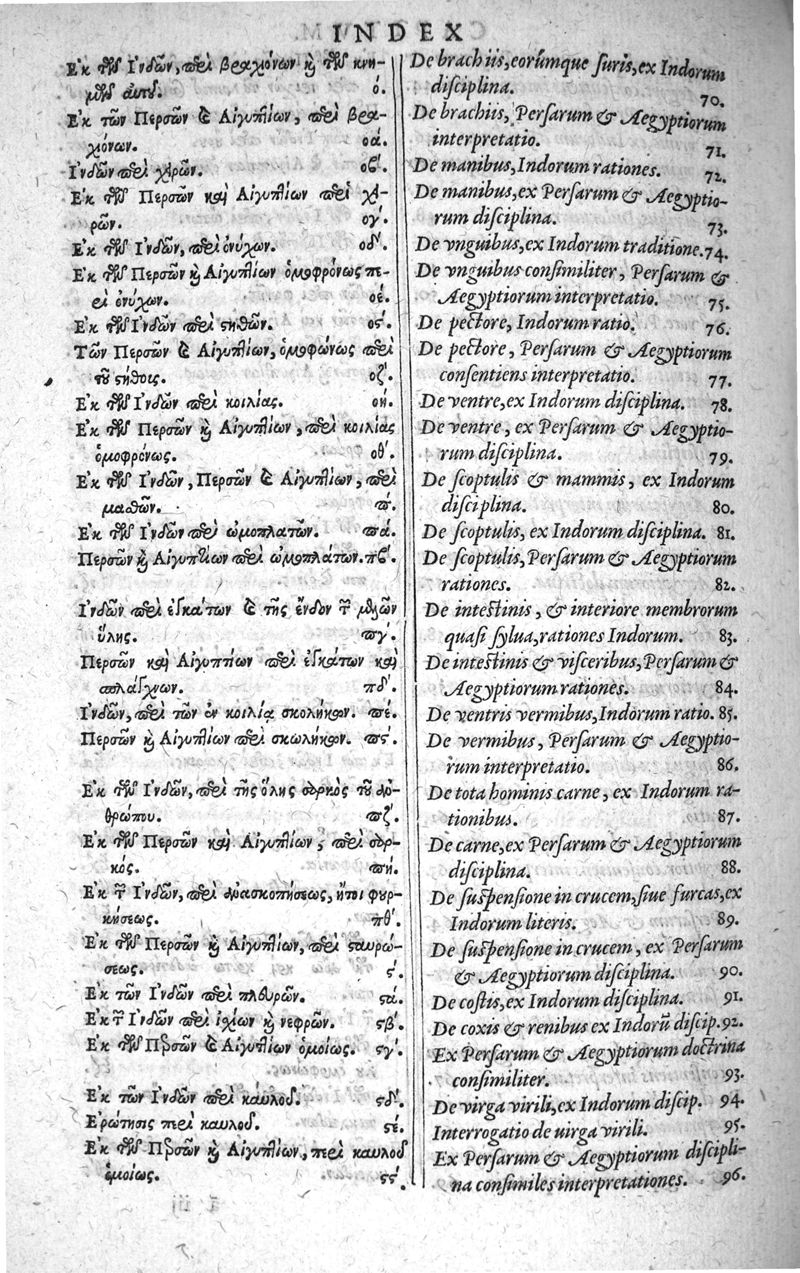 INDEX
Ἐκ τῶν Ἰνδῶν, περὶ βραχιόνων ϗ τῶν κνη-
μῶν αὐτοῦ. ο.
Ἐκ τῶν Περσῶν ϗ Αἰγυπτίων, περὶ βρα-
χιόνων. οά.
Ἰνδῶν περὶ χειρῶν. οβʹ.
Ἐκ τῶν Περσῶν καὶ Αἰγυπτίων περὶ χει-
ρῶν. ογʹ.
Ἐκ τῶν Ἰνδῶν, περὶ ὀνύχων. οδʹ.
Ἐκ τῶν Περσῶν ϗ Αἰγυπτίων ὁμοφρόνως πε-
ρὶ ὀνύχων. οέ.
Ἐκ τῶν Ἰνδῶν περὶ στηθῶν. οϛʹ.
Τῶν Περσῶν ϗ Αἰγυπτίων, ὁμοφώνως περὶ
τοῦ στήθοις. οζʹ.
Ἐκ τῶν Ἰνδῶν περὶ κοιλίας. οή.
Ἐκ τῶν Περσῶν ϗ Αἰγυπτίων, περὶ κοιλίας
ὁμοφρόνως. οθʹ.
Ἐκ τῶν Ἰνδῶν, Περσῶν ϗ Αἰγυπτίων, περὶ
μασθῶν. πʹ.
Ἐκ τῶν Ἰνδῶν περὶ ὠμοπλατῶν. πά.
Περσῶν ϗ Αἰγυπτίων περὶ ὠμοπλάτων. πβʹ.
Ἰνδῶν περὶ ἐγκάτων ϗ τῆς ἔνδον τῶν μελῶν
ὕλης. πγʹ.
Περσῶν καὶ Αἰγυπτίων περὶ ἐγκάτων καὶ
σπλάγχνων. πδʹ.
Ἰνδῶν, περὶ τῶν ἐν κοιλίᾳ σκολήκων. πέ.
Περσῶν ϗ Αἰγυπτίων περὶ σκωλήκων. πϛʹ.
Ἐκ τῶν Ἰνδῶν, περὶ τῆς ὅλης σαρκὸς τοῦ ἀν-
θρώπου. πζʹ.
Ἐκ τῶν Περσῶν καὶ Αἰγυπτίων, περὶ σαρ-
κός. πή.
Ἐκ τῶν Ἰνδῶν, περὶ ἀνασκοπήσεως, ἤτοι φυρ-
κήσεως. πθʹ.
Ἐκ τῶν Περσῶν ϗ Αἰγυπτίων, περὶ σταυρώ-
σεως. ϛʹ.
Ἐκ τῶν Ἰνδῶν περὶ πλευρῶν. ϛά.
Ἐκ τῶν Ἰνδῶν περὶ ἰχίων ϗ νεφρῶν. ϛβʹ.
Ἐκ τῶν Περσῶν ϗ Αἰγυπτίων ὁμοίως. ϛγʹ.
Ἐκ τῶν Ἰνδῶν περὶ καυλοῦ. ϛδʹ.
Ἐρώτησις περὶ καυλοῦ. ϛέ.
Ἐκ τῶν Περσῶν ϗ Αἰγυπτίων, περὶ καυλοῦ
ὁμοίως. ϛϛʹ.
De brachiis, eorúmque suris, ex Indorum
disciplina. 70.
De brachiis, Persarum & Aegyptiorum
interpretatio. 71.
De manibus, Indorum rationes. 72.
De manibus, ex Persarum & Aegyptio-
rum disciplina. 73.
De vnguibus, ex Indorum traditione. 74.
De vnguibus consimiliter, Persarum &
Aegyptiorum interpretatio. 75.
De pectore, Indorum ratio. 76.
De pectore, Persarum & Aegyptiorum
consentiens interpretatio. 77.
De ventre, ex Indorum disciplina. 78.
De ventre, ex Persarum & Aegyptio-
rum disciplina. 79.
De scoptulis & mammis, ex Indorum
disciplina. 80.
De scoptulis, ex Indorum disciplina. 81.
De scoptulis, Persarum & Aegyptiorum
rationes. 82.
De intestinis, & interiore membrorum
quasi sylua, rationes Indorum. 83.
De intestinis & visceribus, Persarum &
Aegyptiorum rationes. 84.
De ventris vermibus, Indorum ratio. 85.
De vermibus, Persarum & Aegyptio-
rum interpretatio. 86.
De tota hominis carne, ex Indorum ra-
tionibus. 87.
De carne, ex Persarum & Aegyptiorum
disciplina. 88.
De suspensione in crucem, siue furcas, ex
Indorum literis. 89.
De suspensione in crucem, ex Persarum
& Aegyptiorum disciplina. 90.
De costis, ex Indorum disciplina. 91.
De coxis & renibus ex Indorū discip. 92.
Ex Persarum & Aegyptiorum doctrina
consimiliter. 93.
De virga virili, ex Indorum discip. 94.
Interrogatio de uirga virili. 95.
Ex Persarum & Aegyptiorum discipli-
na consimiles interpretationes. 96.